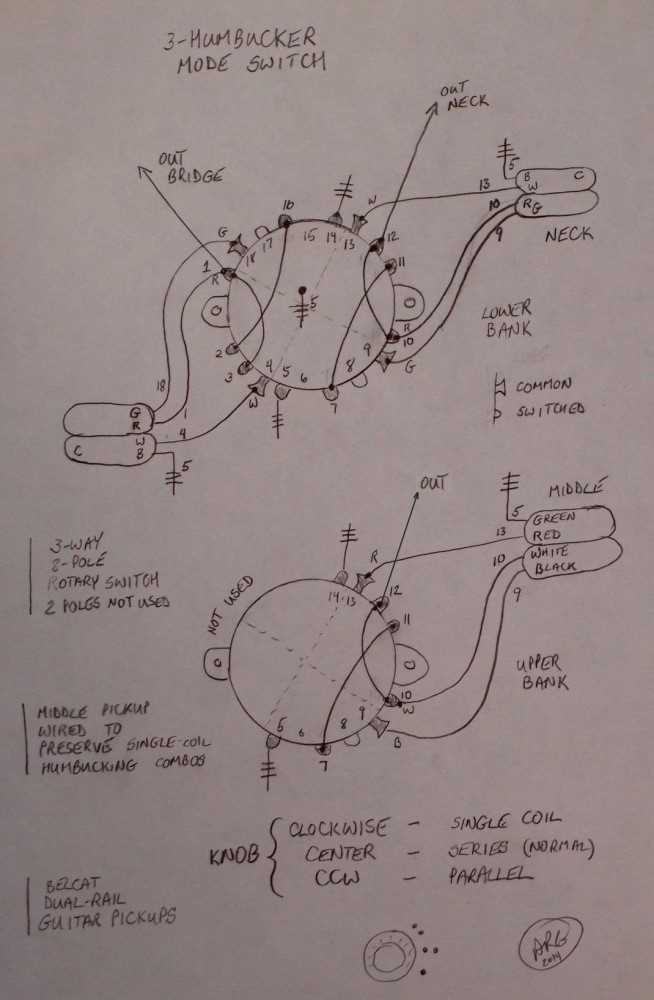 3-HUMBUCKER
MODE SWITCH
OUT
NECK
OUT
BRIDGE
5
B
W
C
13
R G
10
9
NECK
G
16
17
18
15
14
13
W
12
11
1
R
5
R
10
9
G
8
7
6
5
4
3
2
W
LOWER
BANK
COMMON
SWITCHED
18
1
G
R
W
B
C
4
5
OUT
MIDDLE
5
GREEN
RED
WHITE
BLACK
13
10
9
3-WAY
8-POLE
ROTARY SWITCH
2 POLES NOT USED
NOT USED
R
14
13
12
11
10
W
9
B
8
7
6
5
UPPER
BANK
MIDDLE PICKUP
WIRED TO
PRESERVE SINGLE-COIL
HUMBUCKING COMBOS
KNOB
CLOCKWISE - SINGLE COIL
CENTER - SERIES (NORMAL)
CCW - PARALLEL
BELCAT
DUAL-RAIL
GUITAR PICKUPS
ARG
2014